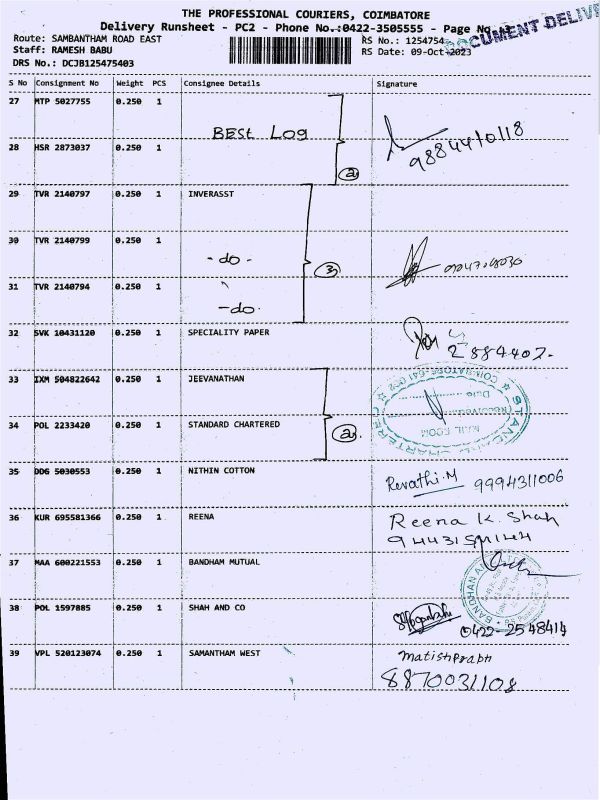 THE PROFESSIONAL COURIERS, COIMBATORE
Delivery Runsheet - PC2 - Phone No.:0422-3505555 - Page No.
DOCUMENT DELIV
Route: SAMBANTHAM ROAD EAST
RS No.: 1254754
Staff: RAMESH BABU
RS Date: 09-Oct-2023
DRS No.: DCJB125475403
S No Consignment No Weight PCS Consignee Details Signature
27 MTP 5027755 0.250 1
BEST LOG
9884410118
28 HSR 2873037 0.250 1
2
29 TVR 2140797 0.250 1 INVERASST
30 TVR 2140799 0.250 1
- do -
3
31 TVR 2140794 0.250 1
- do -
32 SVK 10431120 0.250 1 SPECIALITY PAPER
2884402-
33 IXM 504822642 0.250 1 JEEVANATHAN
COIMBATORE-641 002
Date
Received
MAIL ROOM
STANDARD CHARTERED
34 POL 2233420 0.250 1 STANDARD CHARTERED
2
35 DDG 5030553 0.250 1 NITHIN COTTON
Revathi.M 9994311006
36 KUR 695581366 0.250 1 REENA
Reena K. Shah
37 MAA 600221553 0.250 1 BANDHAM MUTUAL
BANDHAN
38 POL 1597885 0.250 1 SHAH AND CO
0422-2548414
39 VPL 520123074 0.250 1 SAMANTHAM WEST
Matishprabh
8870031108